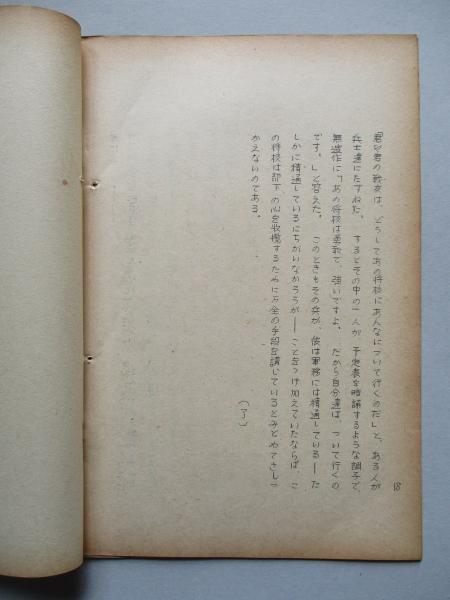 「君や君の戦友は、どうしてあの将校にあんなについて行くのだ」と、ある人が
兵士達にたずねた。するとその中の一人が、予定表を暗誦するような調子で、
無造作に「あの将校は勇敢で、強いですよ。だから自分達は、ついて行くの
です。」と答えた。このときもその兵が、彼は軍務には精通している――た
しかに精通しているにちがいなかろうが――ことをつけ加えていたならば、こ
の将校は部下の心を收攬するために万全の手段を講じているとみとめてさしつ
かえないのである。
（了）
18